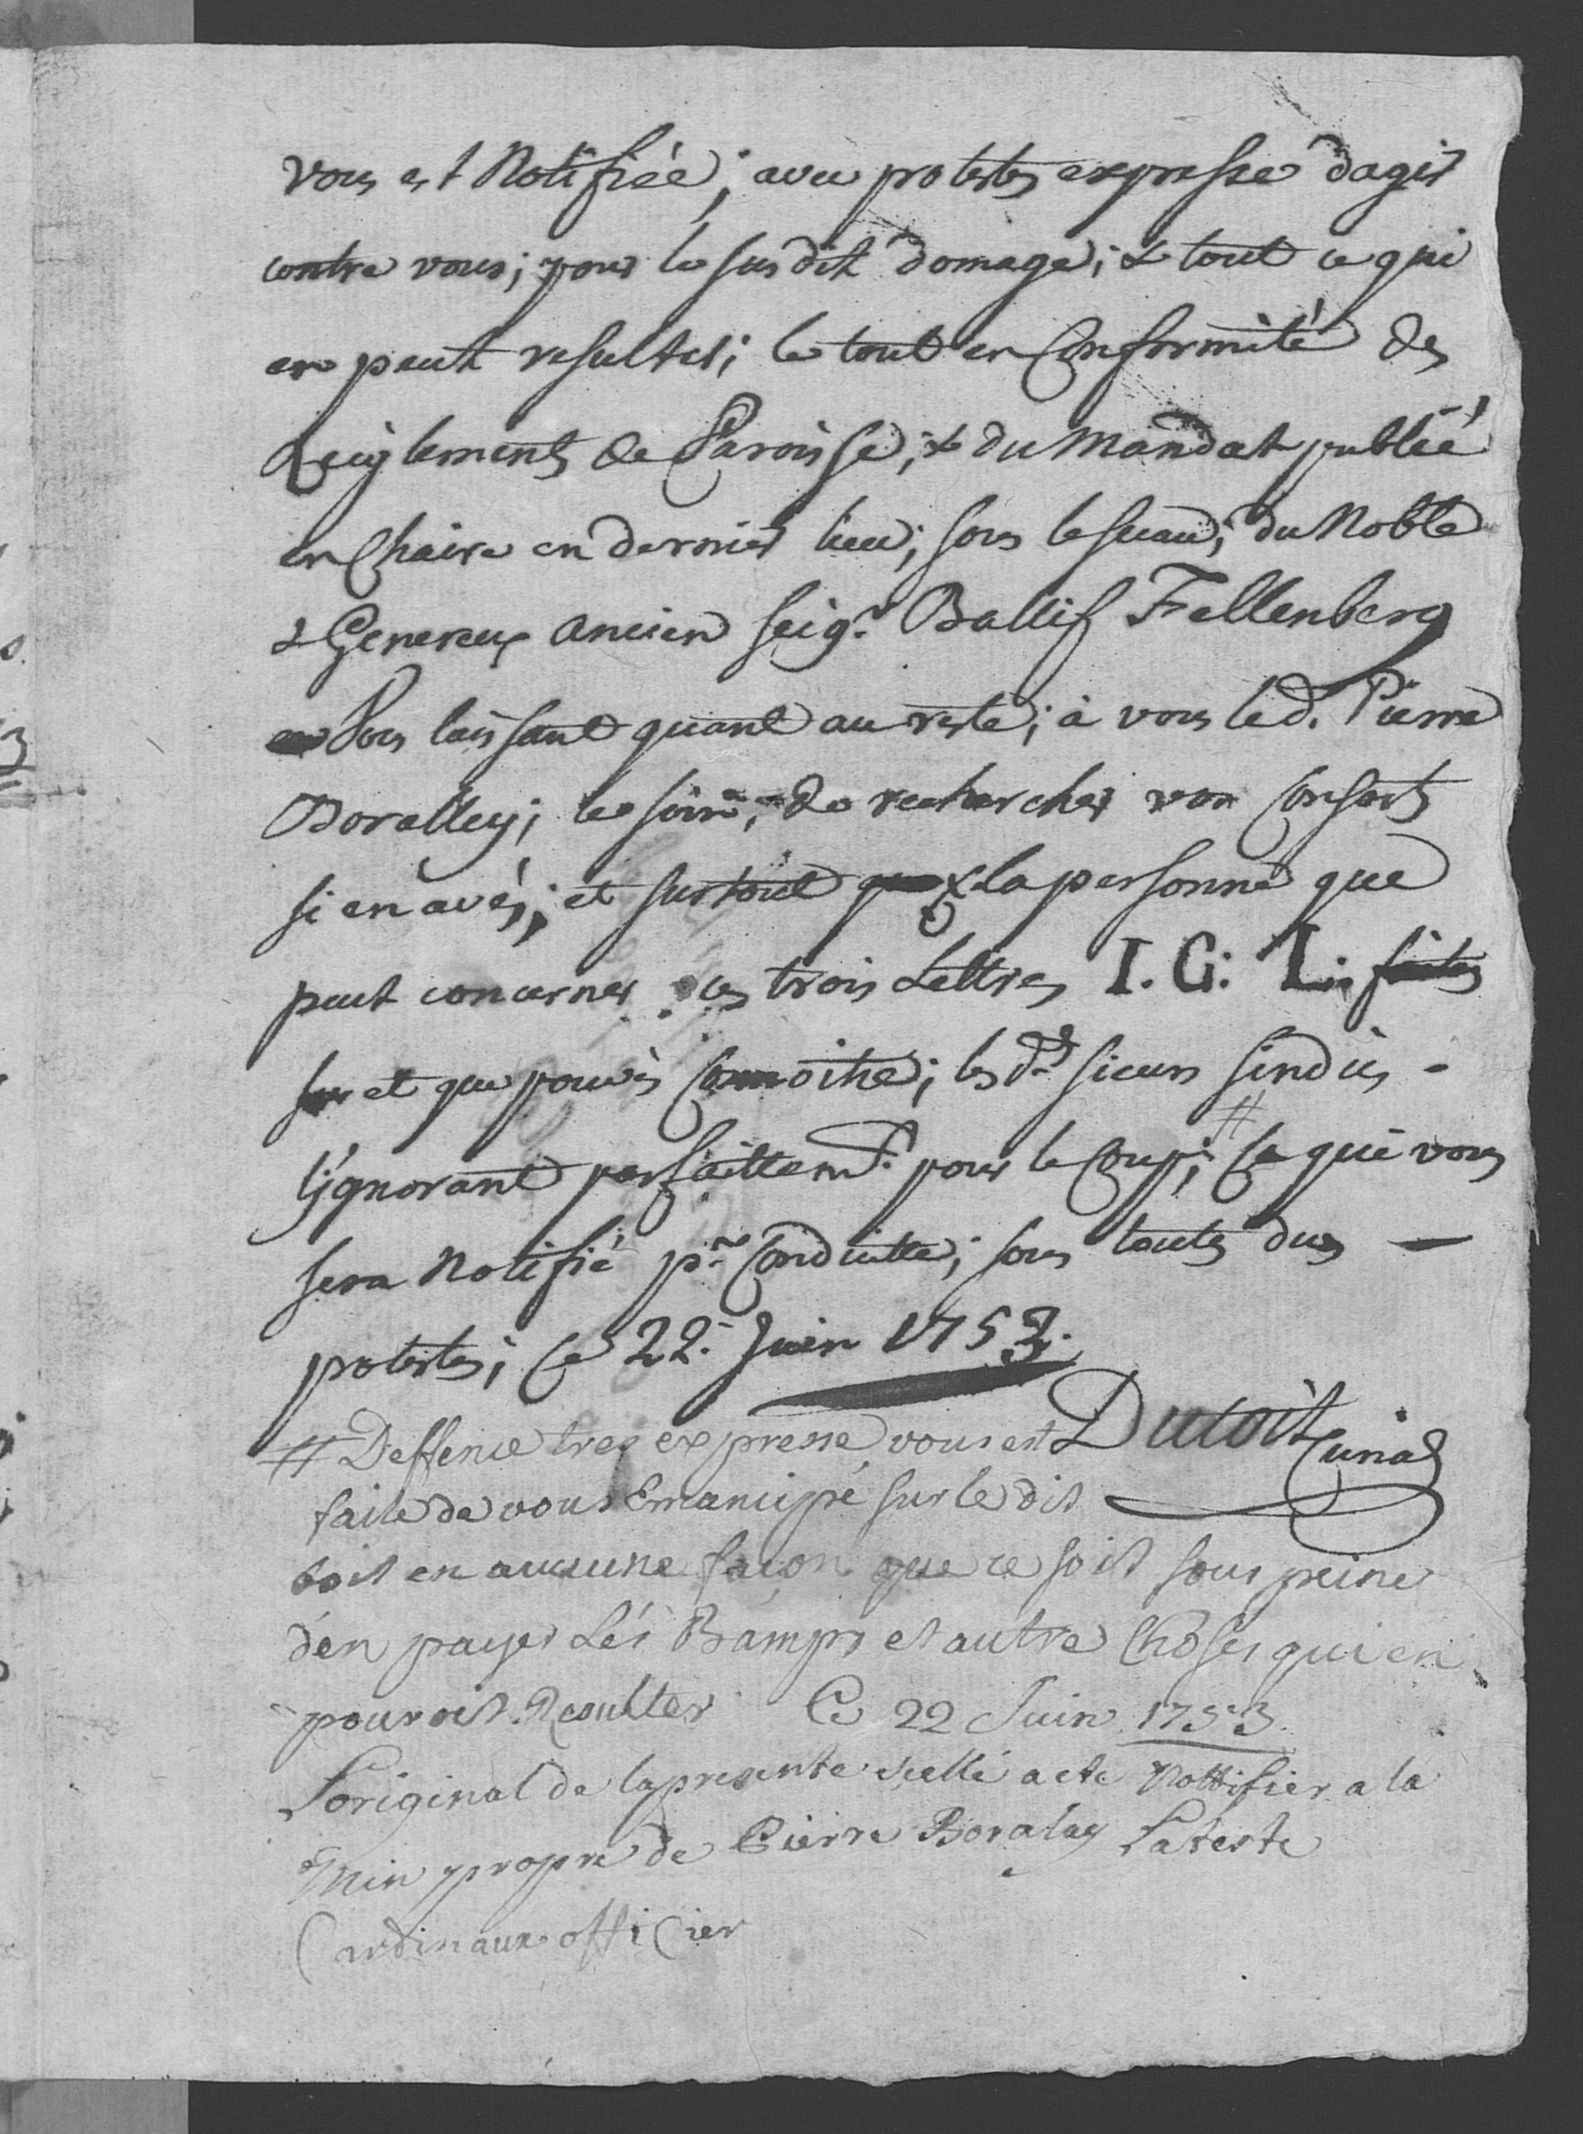 vous est Notifiée; avec protestes expresse dagir
contre vous; pour le susdit domage; & tout ce qui
en peut resulter; le tout en Conformité des
Reiglements de Paroisse; & du Mandat publié
en Chaire en dernier lieu; sous le sceau; du Noble
& Genereux ancien seigr. Ballif Fellenberg
Vous laissant quant au reste; à vous led. Pierre
Boralley; le soin; de rechercher vos Consorts
si en avés; et surtout la personne que
peut concerner ces trois Lettres I. G: L: faites
sur et que pouvés Connoitre; les dts sieurs sindics -
l'ignorant parfaittemt. pour le Coup; # Ce qui vous
sera Notifié pr. Conduitte; sous toutes dues —
protestes; Ce 22. Juin 1753.
# Deffence tres expresse vous est Dutoit Curial
faite de vous Emancipé sur le dit
boit en aucune façon que ce soit sous peine
d'en payer Lés Bamps et autre Choses qui en
pouroit Resulter Ce 22 Juin 1753
Loriginal de la presente scellé a ete Nottifier a la
Min propre de Pierre Boralay Lateste
Cardinaux officier